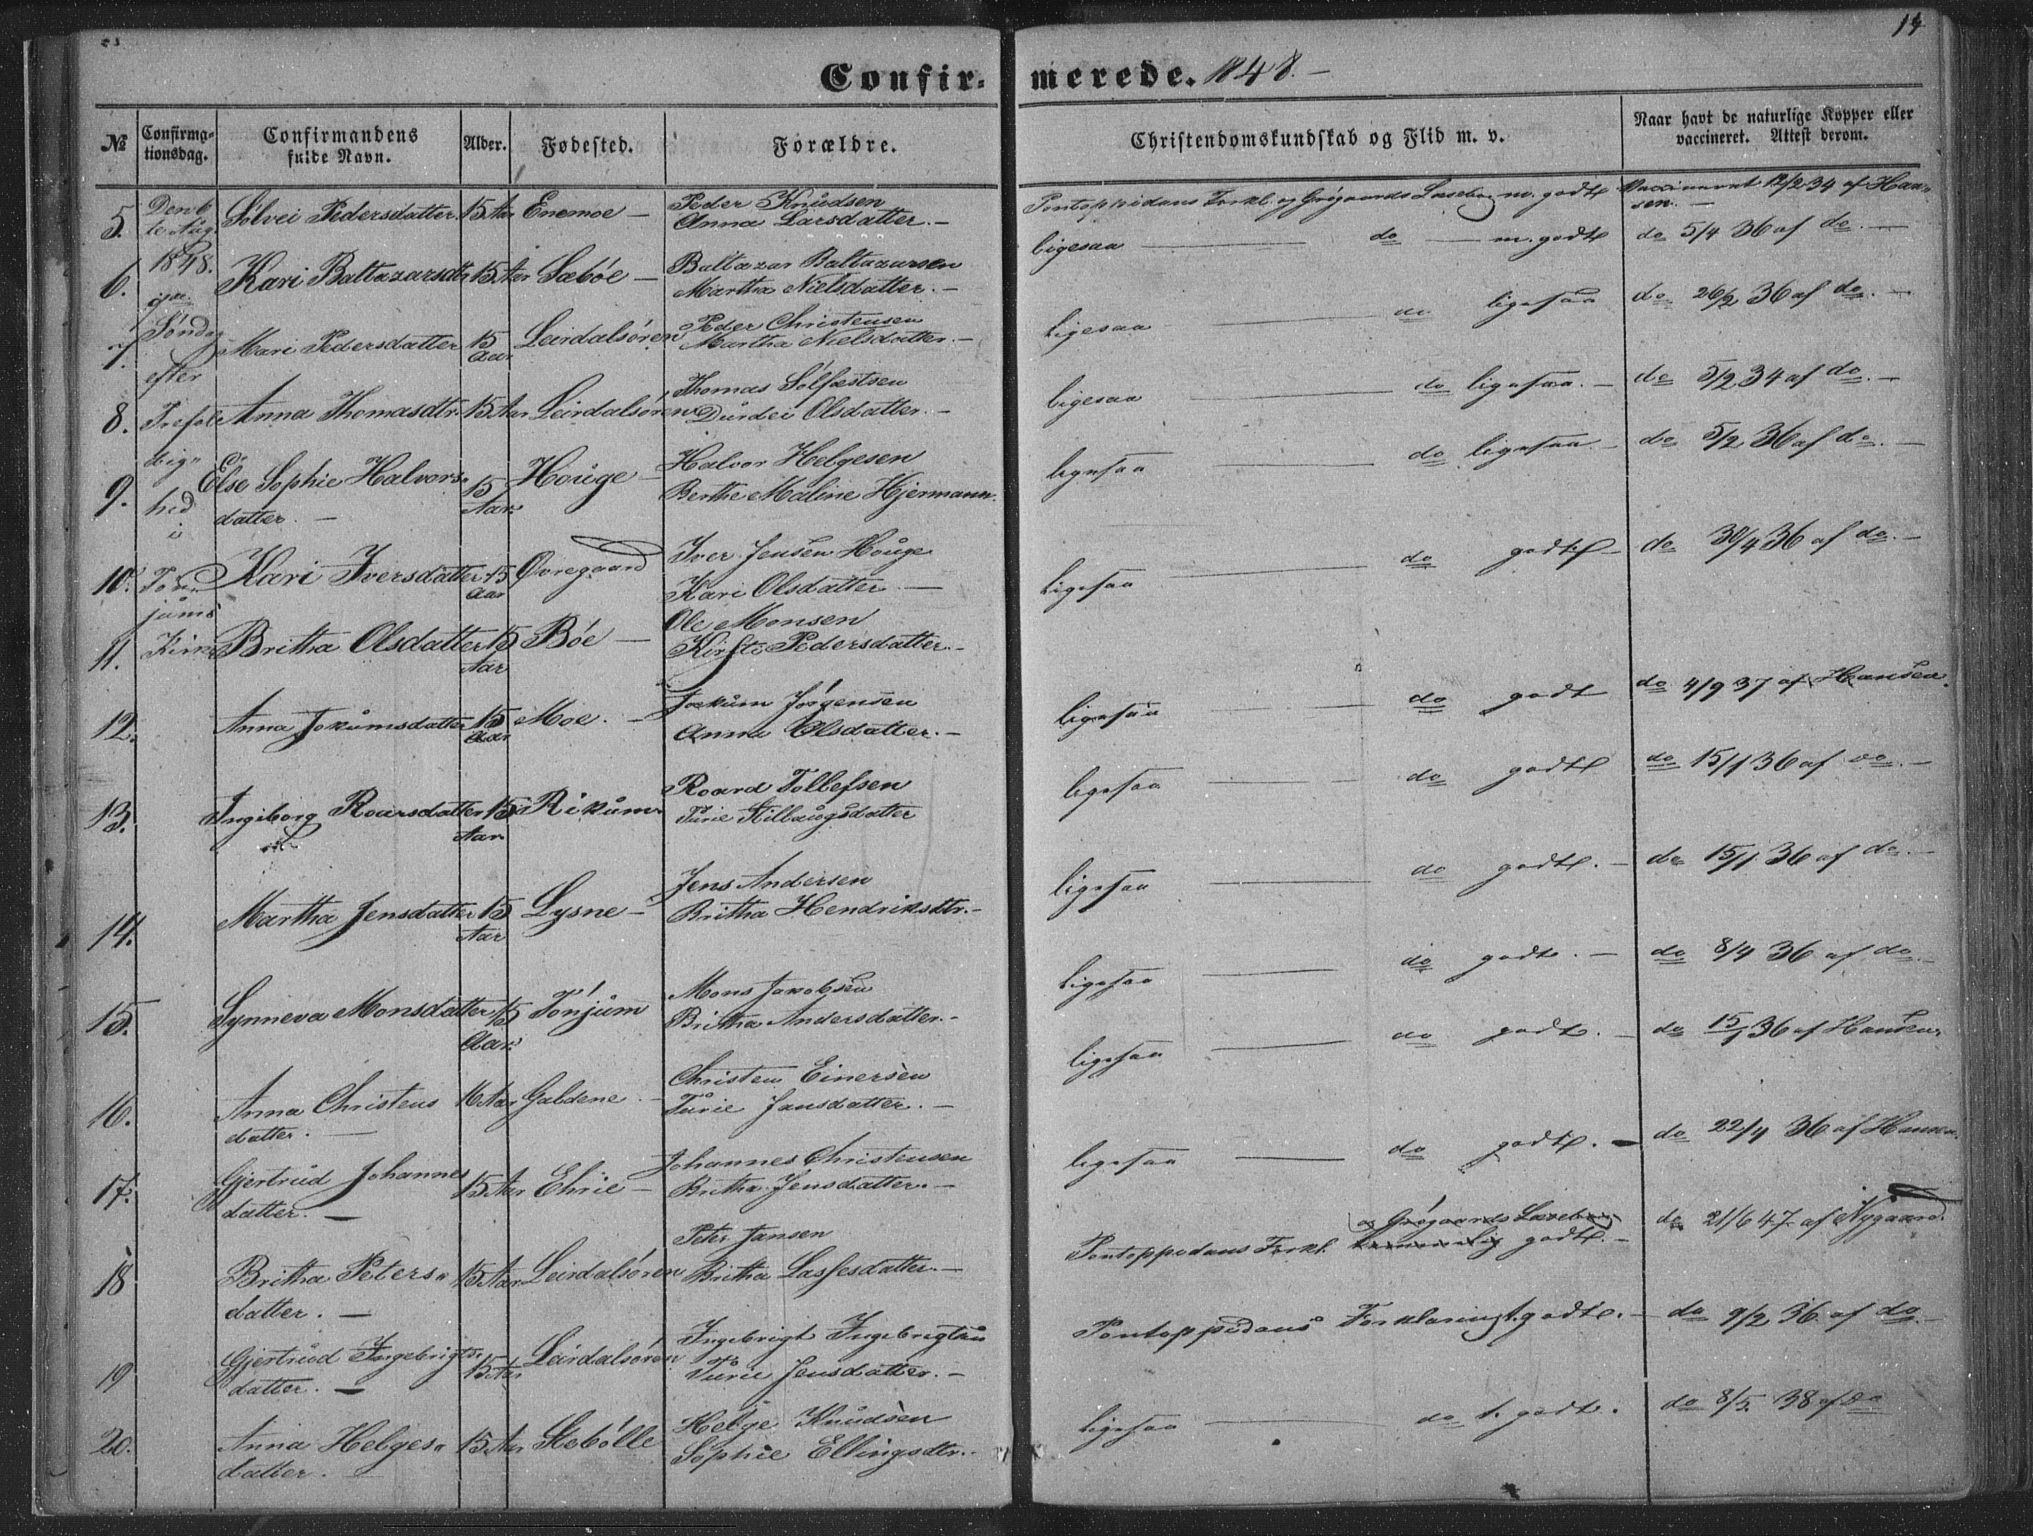 14
Confirmerede. 1848. –
№ Confirmationsdag. Confirmandens fulde Navn. Alder. Fødested. Forældre. Christendomskundskab og Flid m. v. Naar havt de naturlige Kopper eller vaccineret. Attest derom.
Den 6te Aug. 1848. 7de Søndag efter Trefoldighed i Tønjums Kirke
5. Sølvei Pedersdatter 15 Aar Enemoe – Peder Knudsen Anna Larsdatter. – Pontoppidans Forkl. og Grøgaards Læsebog m. godt Vaccineret 12/2 34 af Hansen. –
6. Kari Baltazarsdtr 15 Aar Sæbøe – Baltazar Baltazarsen Martha Nielsdatter. – ligesaa — do — m. godt do 5/4 36 af do. –
7. Mari Pedersdatter 15 Aar Leirdalsøren Peder Christensen Martha Nielsdatter. – ligesaa — do ligesaa do 26/2 36 af do. –
8. Anna Thomasdtr 15 Aar Leirdalsøren Thomas Solfestsen Durdei Olsdatter. – ligesaa — do ligesaa. – do 5/2 34 af do. –
9. Else Sophie Halvorsdatter. – 15 Aar Houge – Halvor Helgesen Berthe Maline Hjermann. ligesaa — do ligesaa – do 5/2 36 af do. –
10. Kari Iversdatter 15 Aar Øvregaard Iver Jensen Houge Kari Olsdatter – ligesaa — do godt – do 30/4 36 af do. –
11. Britha Olsdatter 15 Aar Bøe – Ole Monsen Kirsti Pedersdatter. – ligesaa — do godt do 4/9 37 af Hansen.
12. Anna Jokumsdatter 15 Aar Moe. – Jockum Jörgensen Anna Olsdatter. – ligesaa — do godt do 15/1 36 af do. –
13. Ingiborg Roarsdatter 15 Aar Rikum Roard Tollefsen Turie Hilbaugsdatter ligesaa — do godt. – do 15/1 36 af do. –
14. Martha Jensdatter 15 Aar Lysne – Jens Andersen Britha Hendriksdtr. – ligesaa — do godt. – do 8/4 36 af do. –
15. Synneva Monsdatter 15 Aar. Tönjum Mons Jakobsen Britha Andersdatter. – ligesaa — do godt. – do 15/1 36 af Hansen
16. Anna Christensdatter. – 16 Aar Galdene – Christen Einersen Turie Jansdatter. – ligesaa — do godt. – do 22/4 36 af Hansen
17. Gjertrud Johannesdatter. – 15 Aar Ehrie – Johannes Christensen Britha Jensdatter. – Pontoppidans Forkl. og Grøgaards Læsebog godt. – do 21/6 47 af Nygaard.
18 Britha Petersdatter. – 15 Aar Leirdalsøren Peter Jansen Britha Lassesdatter. – Pontoppidans Forklaring t. godt. – do 9/2 36 af do. –
19 Gjertrud Ingebrigtsdatter. – 15 Aar Leirdalsøren Ingebrigt Ingebrigtsen Turie Jensdatter. – ligesaa — do t. godt. do 8/5 38 af do
20. Anna Helgesdatter. – 15 Aar Stebølle Helge Knudsen Sophie Ellingsdtr. –